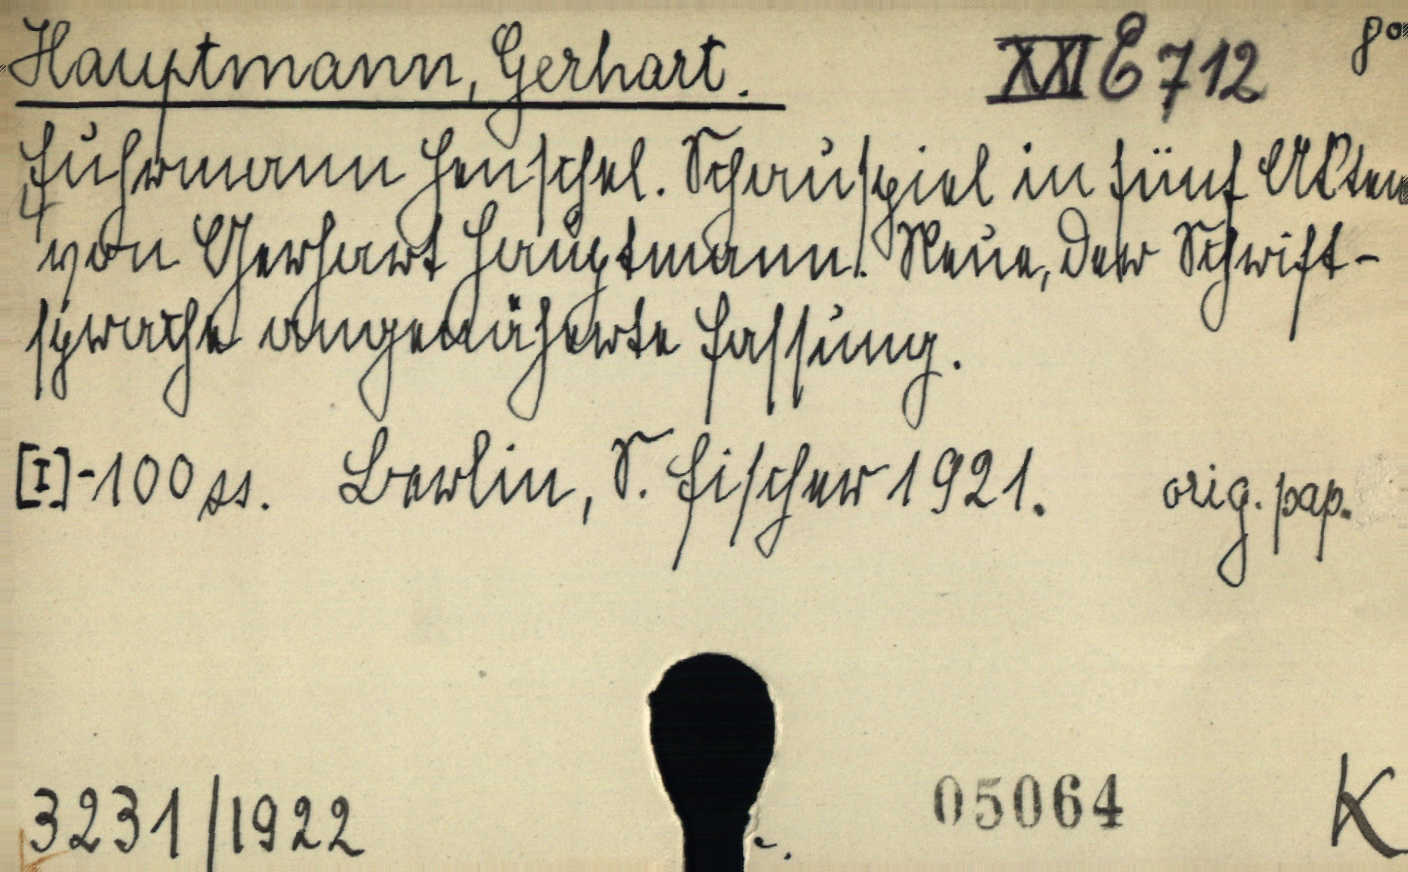 Hauptmann, Gerhart. XXI E 712 8°
Fuhrmann Henschel. Schauspiel in fünf Akten
von Gerhart Hauptmann. Neue, der Schrift-
sprache angenäherte Fassung.
[I]-100 ss. Berlin, S. Fischer 1921. orig. pap.
3231/1922 05064 K